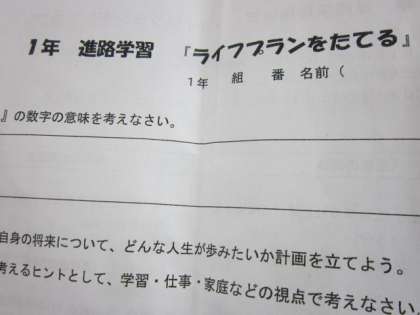 1年 進路学習 『ライフプランをたてる』
1年 組 番 名前（
』の数字の意味を考えなさい。
自身の将来について、どんな人生が歩みたいか計画を立てよう。
考えるヒントとして、学習・仕事・家庭などの視点で考えなさい